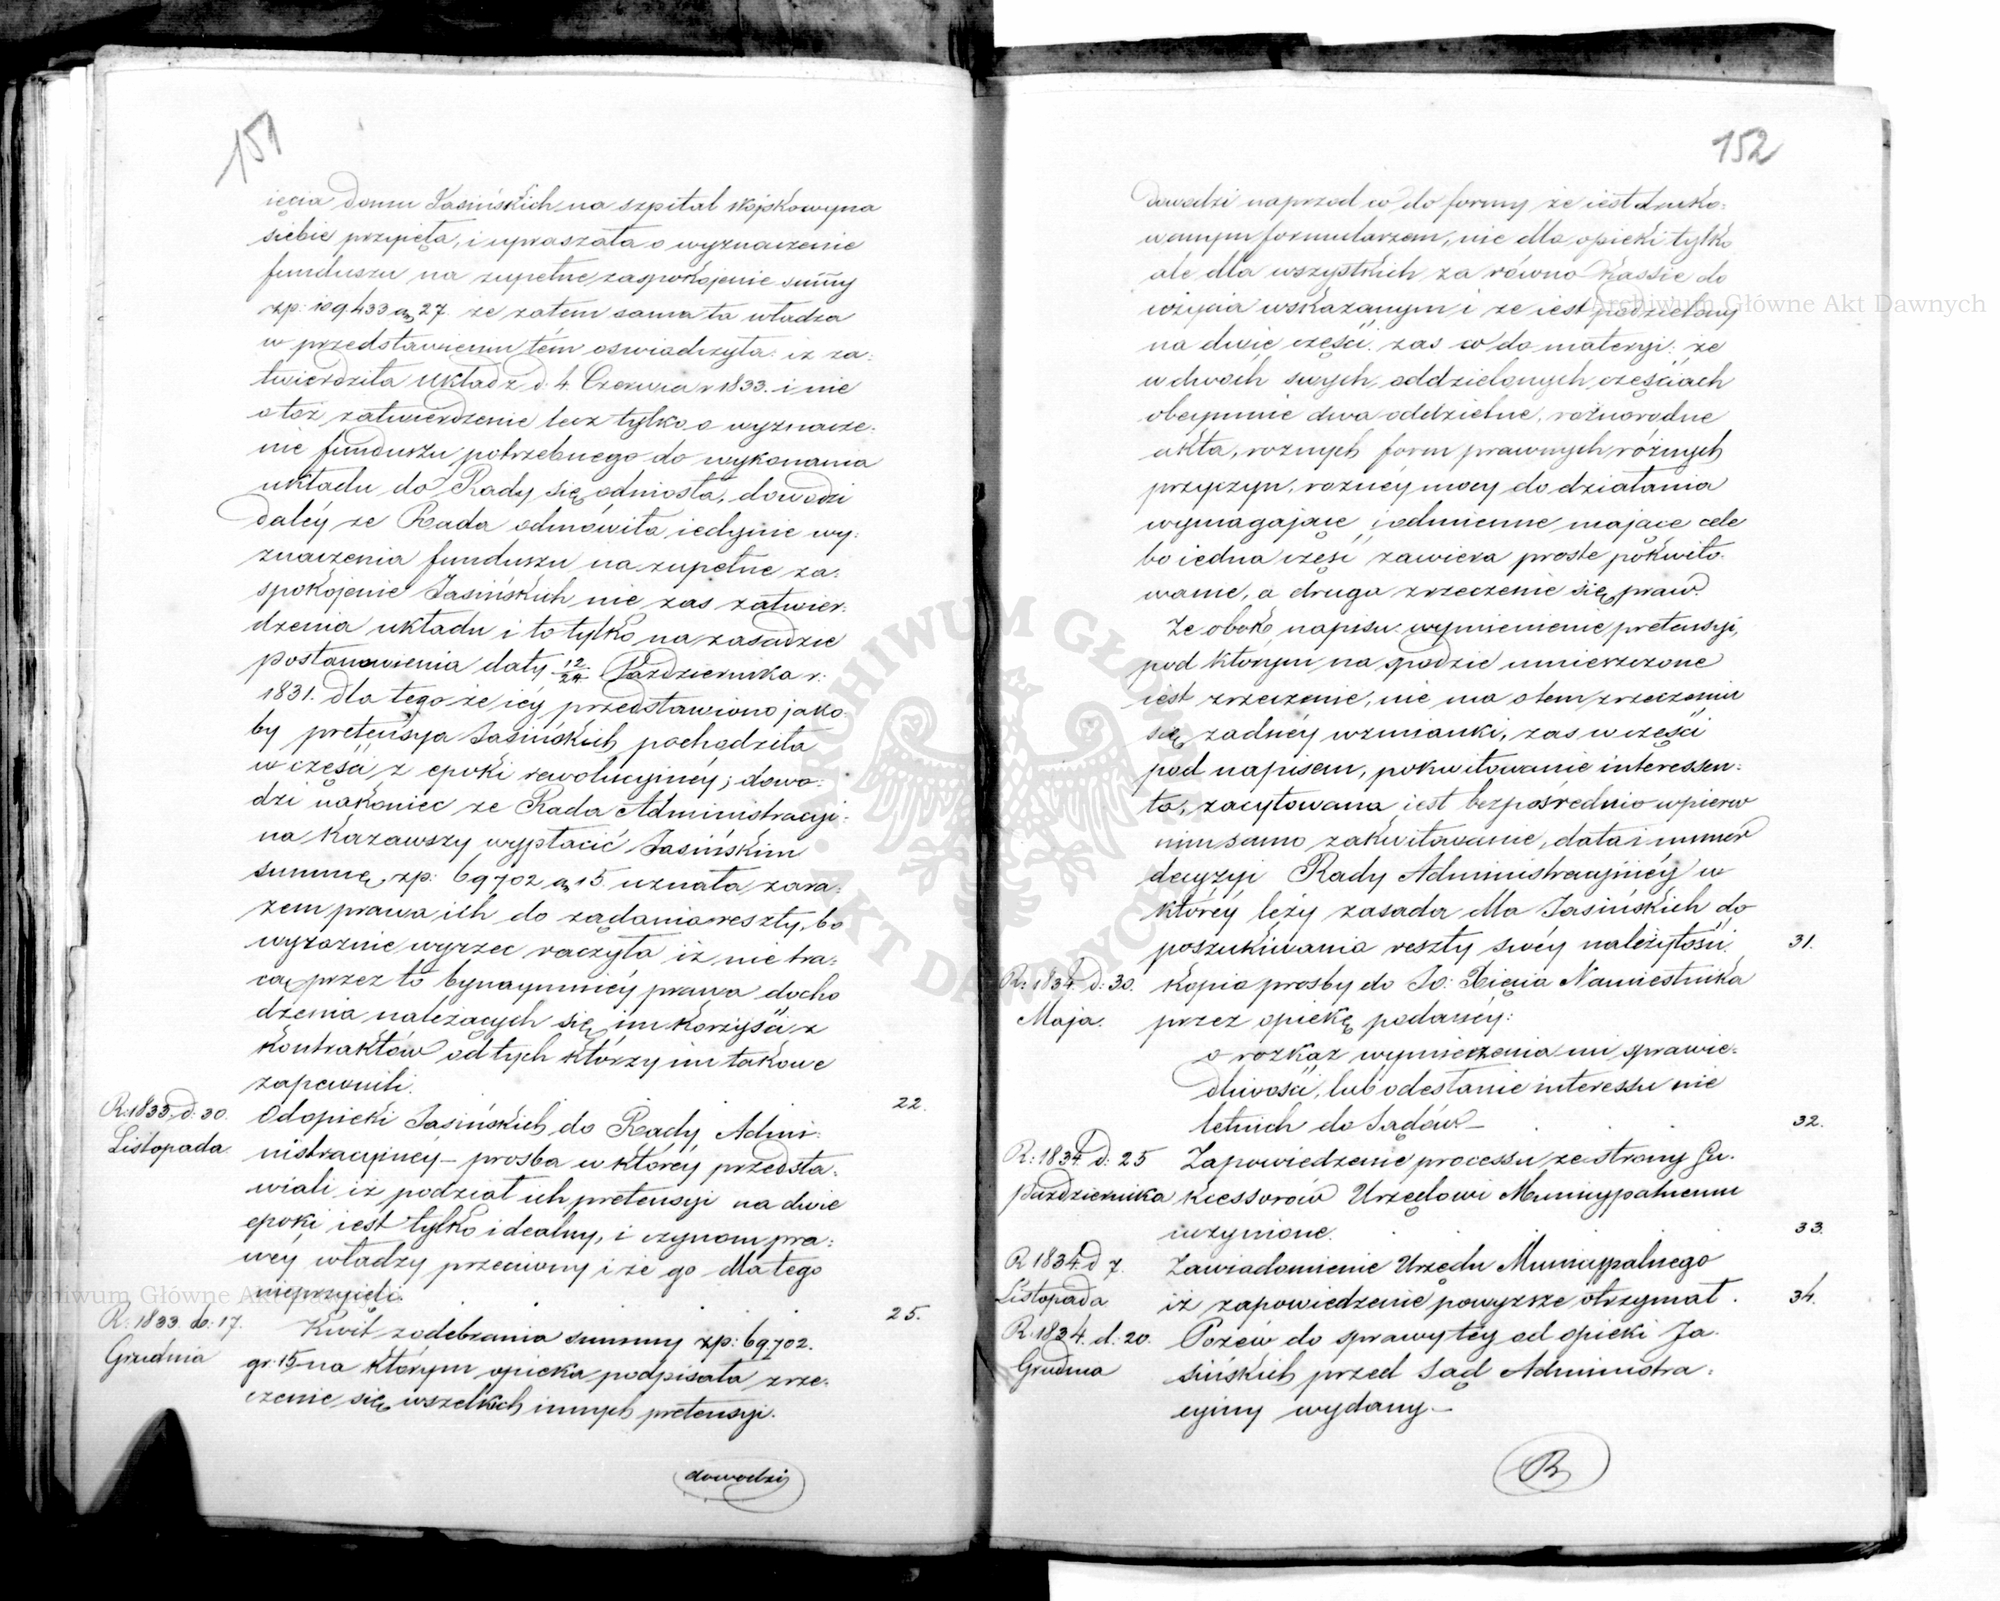 151
ięcia domu Jasińskich na szpital wojskowy na
siebie przyjęła, i upraszała o wyznaczenie
funduszu na zupełne zaspokojenie sum̄y
zp: 109,433 g 27. że zatem sama ta władza
w przedstawieniu tém oswiadczyła: iż za:
twierdziła układ z d. 4. Czerwca r 1833. i nie
o toż zatwierdzenie lecz tylko o wyznacze:
nie funduszu potrzebnego do wykonania
układu do Rady się odniosła, dowodzi
daléy że Rada odmówiła iedynie wy:
znaczenia funduszu na zupełne za:
spokojenie Jasińskich nie zas zatwier:
dzenia układu i to tylko na zasadzie
postanowienia daty 12/24 Października r:
1831. dla tego że iéy przedstawiono jako:
by pretensya Jasińskich pochodziła
w części z epoki rewolucyinéy; dowo:
dzi nakoniec że Rada Administracyi:
na kazawszy wypłacić Jasińskim
summę zp: 69702 g 15. uznała zara:
zem prawa ich do żądania reszty, bo
wyraźnie wyrzec raczyła iż nie tra:
cą przez to bynaymniéy prawa docho
dzenia należących się im korzyści z
kontraktów od tych którzy im takowe
zapewnili. 22.
R: 1833. d: 30. Listopada. Od opieki Jasińskich do Rady Admi:
nistracyinéy – prosba w któréy przedsta:
wiali iż podział ich pretensyi na dwie
epoki iest tylko idealny, i czynom pra:
wéy władzy przeciwny i że go dla tego
nieprzyięli. 25.
R: 1833 do: 17. Grudnia Kwit z odebrania summy zp: 69702.
gr: 15 – na którym opieka podpisała zrze:
czenie się wszelkich innych pretensyi.
dowodzi
152
dowodzi naprzod co do formy że iest druko:
wanym formularzem, nie dla opieki tylko
ale dla wszystkich za równo kassie do
użycia wskazanym i że iest podzielony
na dwie części: zas co do materyi: że
w dwóch swych oddzielonych częściach
obeymuie dwa oddzielne, roznorodne
akta, roznych form prawnych, różnych
przyczyn, roznéy mocy do działania
wymagające, i odmienne mające cele
bo iedna częsć zawiera proste pokwito:
wanie, a druga zrzeczenie się praw.
Że obok napisu wymienienie pretensyi,
pod którym na spodzie umieszczone
iest zrzeczenie, nie ma o tem zrzeczeniu
się żadnéy wzmianki, zas w części
pod napisem, pokwitowanie interessen:
ta, zacytowana iest bezpośrednio wpierw
nim samo zakwitowanie, data i numer
decyzyi Rady Administracyinéy w
któréy leży zasada dla Jasińskich do
poszukiwania reszty swéy należytości. 31.
R: 1834. d: 30. Maja. Kopia prosby do Jo: Xięcia Namiestnika
przez opiekę podanéy:
o rozkaz wymierzenia im sprawie:
dliwości, lub odesłanie interessu nie
letnich do Sądów – 32.
R: 1834. d: 25 Października Zapowiedzenie processu ze strony Su:
kcessorów Urzędowi Municypalnemu
uczynione. 33.
R 1834. d 7. Listopada Zawiadomienie Urzędu Municypalnego
iż zapowiedzenie powyzsze otrzymał. 34.
R. 1834. d. 20. Grudnia Pozew do sprawy téy od opieki Ja:
sińskich przed Sąd Administra:
cyiny wydany –
R
Archiwum Główne Akt Dawnych
Archiwum Główne Akt Dawnych
ARCHIWUM GŁÓWNE AKT DAWNYCH